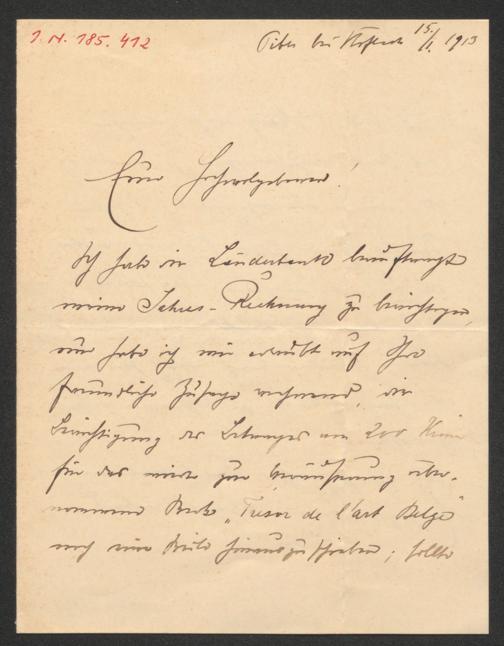 I. N. 185.412
Piber bei Köflach 15./1. 1913
Euer Hochwolgeboren!
Ich habe die Länderbank beauftragt
meine Jahres-Rechnung zu berichtigen,
nur habe ich mir erlaubt auf Ihre
freundliche Zusage rechnend, die
Berichtigung des Betrages von 200 Kronen
für das mir zur Veräußerung über-
nommene Werk „Trésor de l'art Belge"
noch eine Weile hinauszuschieben; sollte